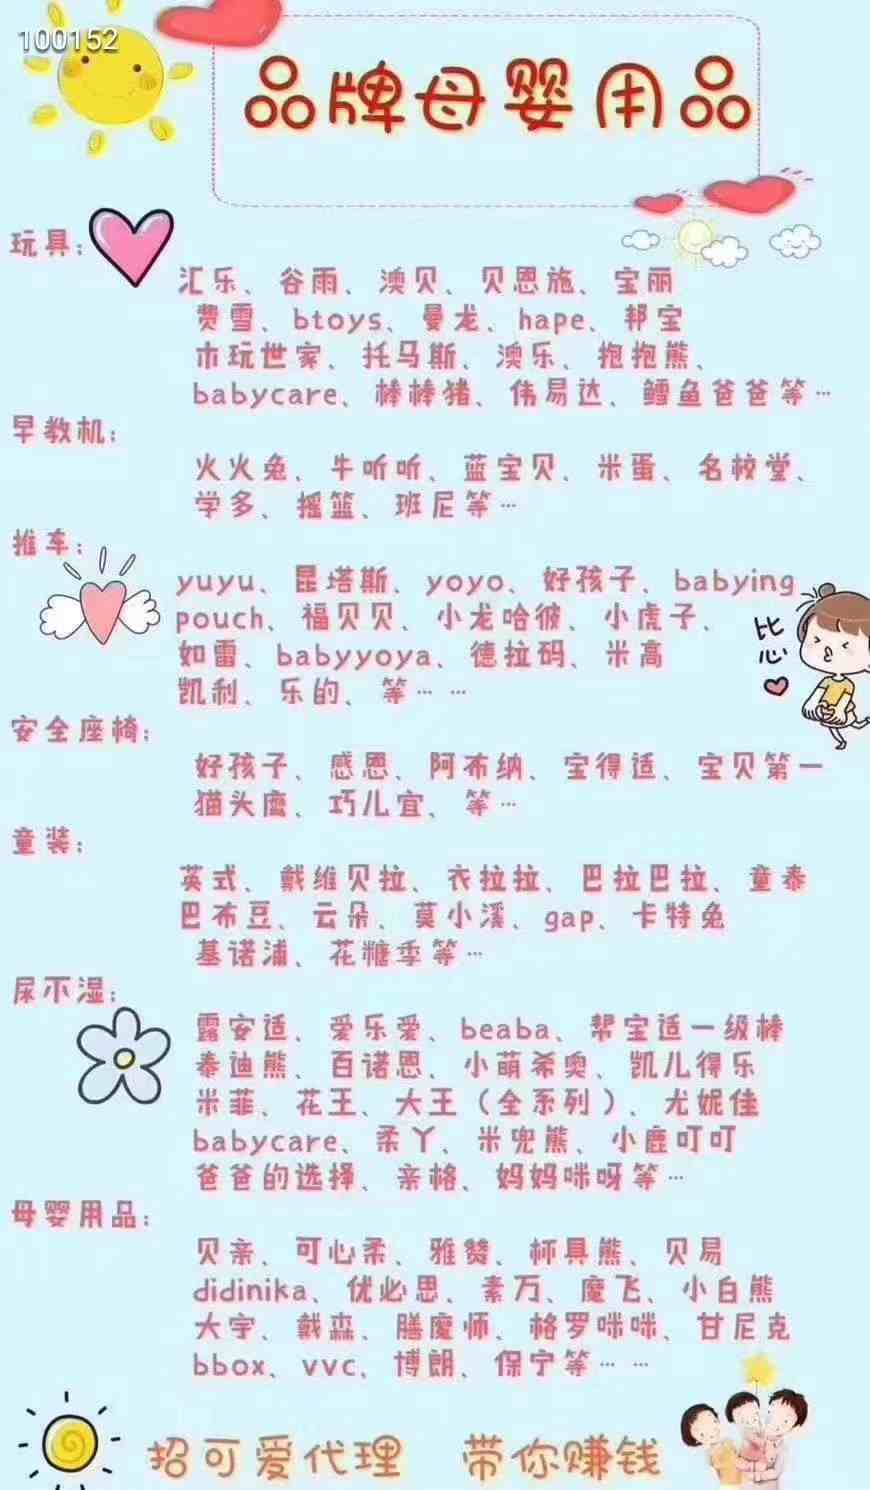 100152
品牌母婴用品
玩具:
汇乐、谷雨、澳贝、贝恩施、宝丽
费雪、btoys、曼龙、hape、邦宝
木玩世家、托马斯、澳乐、抱抱熊、
babycare、棒棒猪、伟易达、鳕鱼爸爸等…
早教机:
火火兔、牛听听、蓝宝贝、米蛋、名校堂、
学多、摇篮、班尼等…
推车:
yuyu、昆塔斯、yoyo、好孩子、babying
pouch、福贝贝、小龙哈彼、小虎子、
比心
如雷、babyyoya、德拉码、米高
凯利、乐的、等……
安全座椅:
好孩子、感恩、阿布纳、宝得适、宝贝第一
猫头鹰、巧儿宜、等…
童装:
英式、戴维贝拉、衣拉拉、巴拉巴拉、童泰
巴布豆、云朵、莫小溪、gap、卡特兔
基诺浦、花糖季等…
尿不湿:
露安适、爱乐爱、beaba、帮宝适一级棒
泰迪熊、百诺恩、小萌希奥、凯儿得乐
米菲、花王、大王（全系列）、尤妮佳
babycare、柔丫、米兜熊、小鹿叮叮
爸爸的选择、亲格、妈妈咪呀等…
母婴用品:
贝亲、可心柔、雅赞、杯具熊、贝易
didinika、优必思、素万、魔飞、小白熊
大宇、戴森、膳魔师、格罗咪咪、甘尼克
bbox、vvc、博朗、保宁等……
招可爱代理 带你赚钱